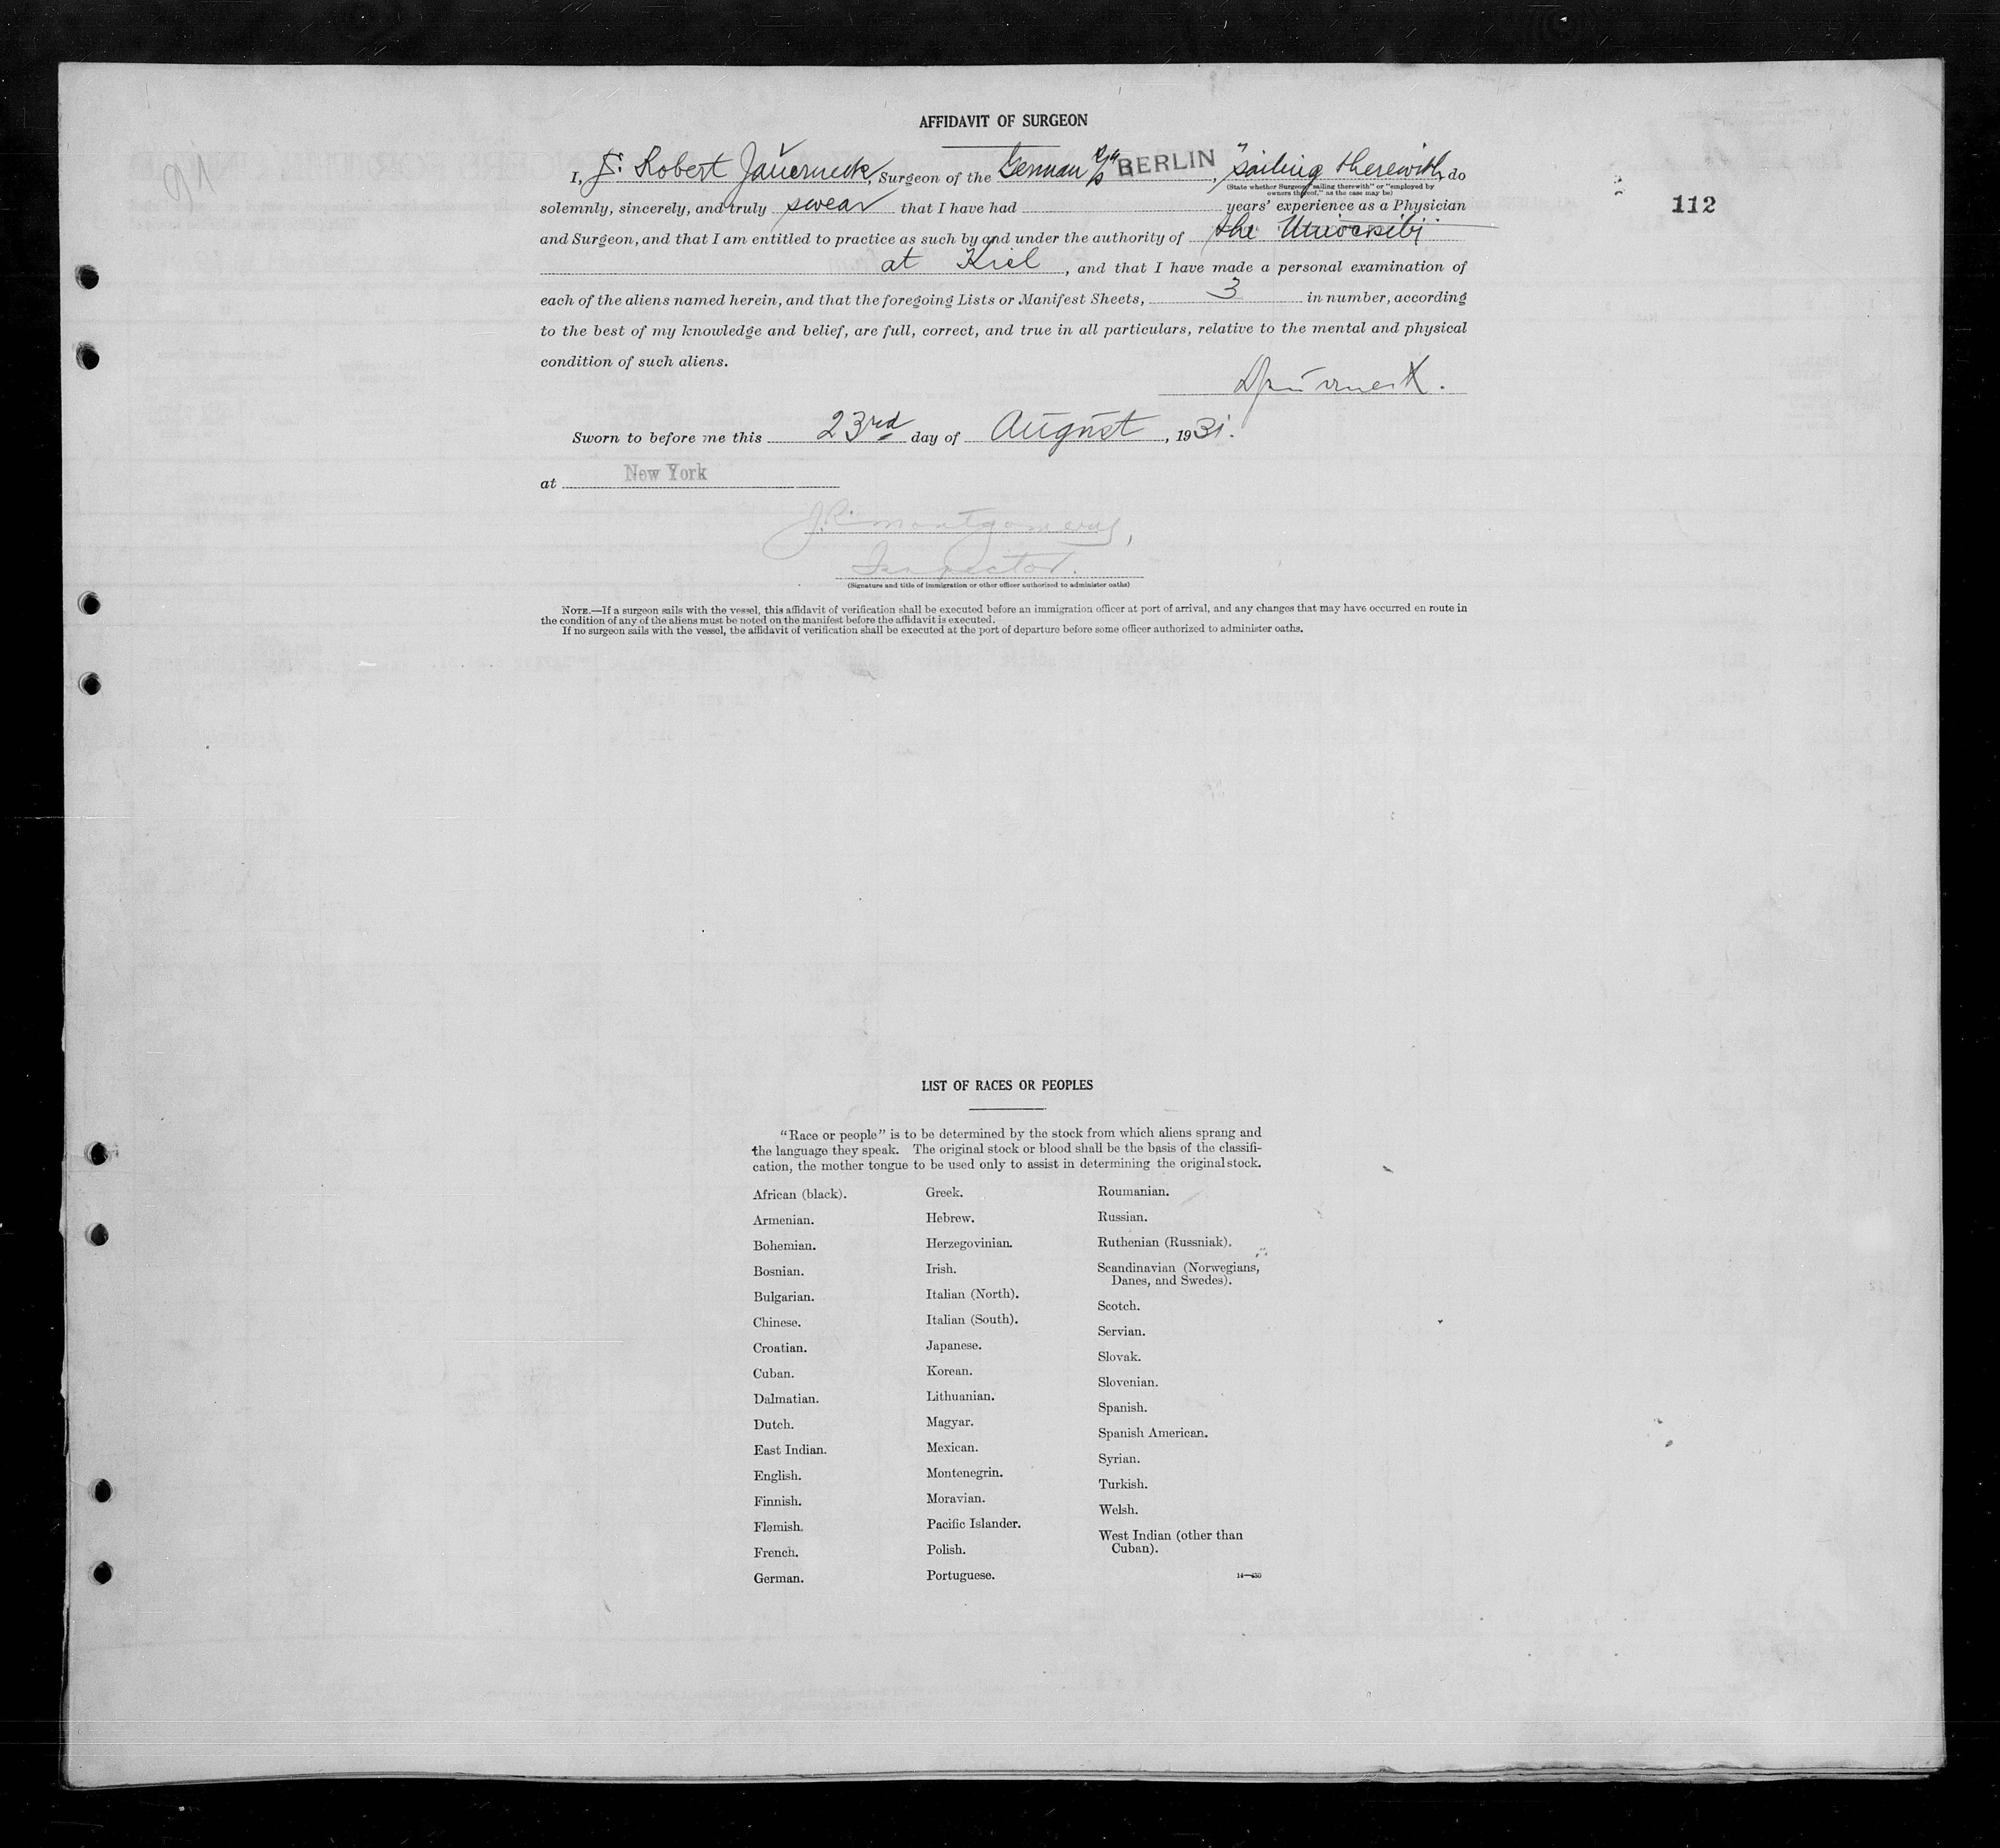 AFFIDAVIT OF SURGEON
I, Robert , Surgeon of the German S/S BERLIN, "sailing therewith, do
(State whether Surgeon "sailing therewith" or "employed by
owners thereof," as the case may be)
112
solemnly, sincerely, and truly swear that I have had years' experience as a Physician
and Surgeon, and that I am entitled to practice as such by and under the authority of the
at Kiel, and that I have made a personal examination of
each of the aliens named herein, and that the foregoing Lists or Manifest Sheets, 3 in number, according
to the best of my knowledge and belief, are full, correct, and true in all particulars, relative to the mental and physical
condition of such aliens.
Sworn to before me this 23rd day of August, 1931.
at New York
Montgomery,
Inspector.
(Signature and title of immigration or other officer authorized to administer oaths)
NOTE.—If a surgeon sails with the vessel, this affidavit of verification shall be executed before an immigration officer at port of arrival, and any changes that may have occurred en route in
the condition of any of the aliens must be noted on the manifest before the affidavit is executed.
If no surgeon sails with the vessel, the affidavit of verification shall be executed at the port of departure before some officer authorized to administer oaths.
LIST OF RACES OR PEOPLES
"Race or people" is to be determined by the stock from which aliens sprang and
the language they speak. The original stock or blood shall be the basis of the classifi-
cation, the mother tongue to be used only to assist in determining the original stock.
African (black).
Armenian.
Bohemian.
Bosnian.
Bulgarian.
Chinese.
Croatian.
Cuban.
Dalmatian.
Dutch.
East Indian.
English.
Finnish.
Flemish.
French.
German.
Greek.
Hebrew.
Herzegovinian.
Irish.
Italian (North).
Italian (South).
Japanese.
Korean.
Lithuanian.
Magyar.
Mexican.
Montenegrin.
Moravian.
Pacific Islander.
Polish.
Portuguese.
Roumanian.
Russian.
Ruthenian (Russniak).
Scandinavian (Norwegians,
Danes, and Swedes).
Scotch.
Servian.
Slovak.
Slovenian.
Spanish.
Spanish American.
Syrian.
Turkish.
Welsh.
West Indian (other than
Cuban).